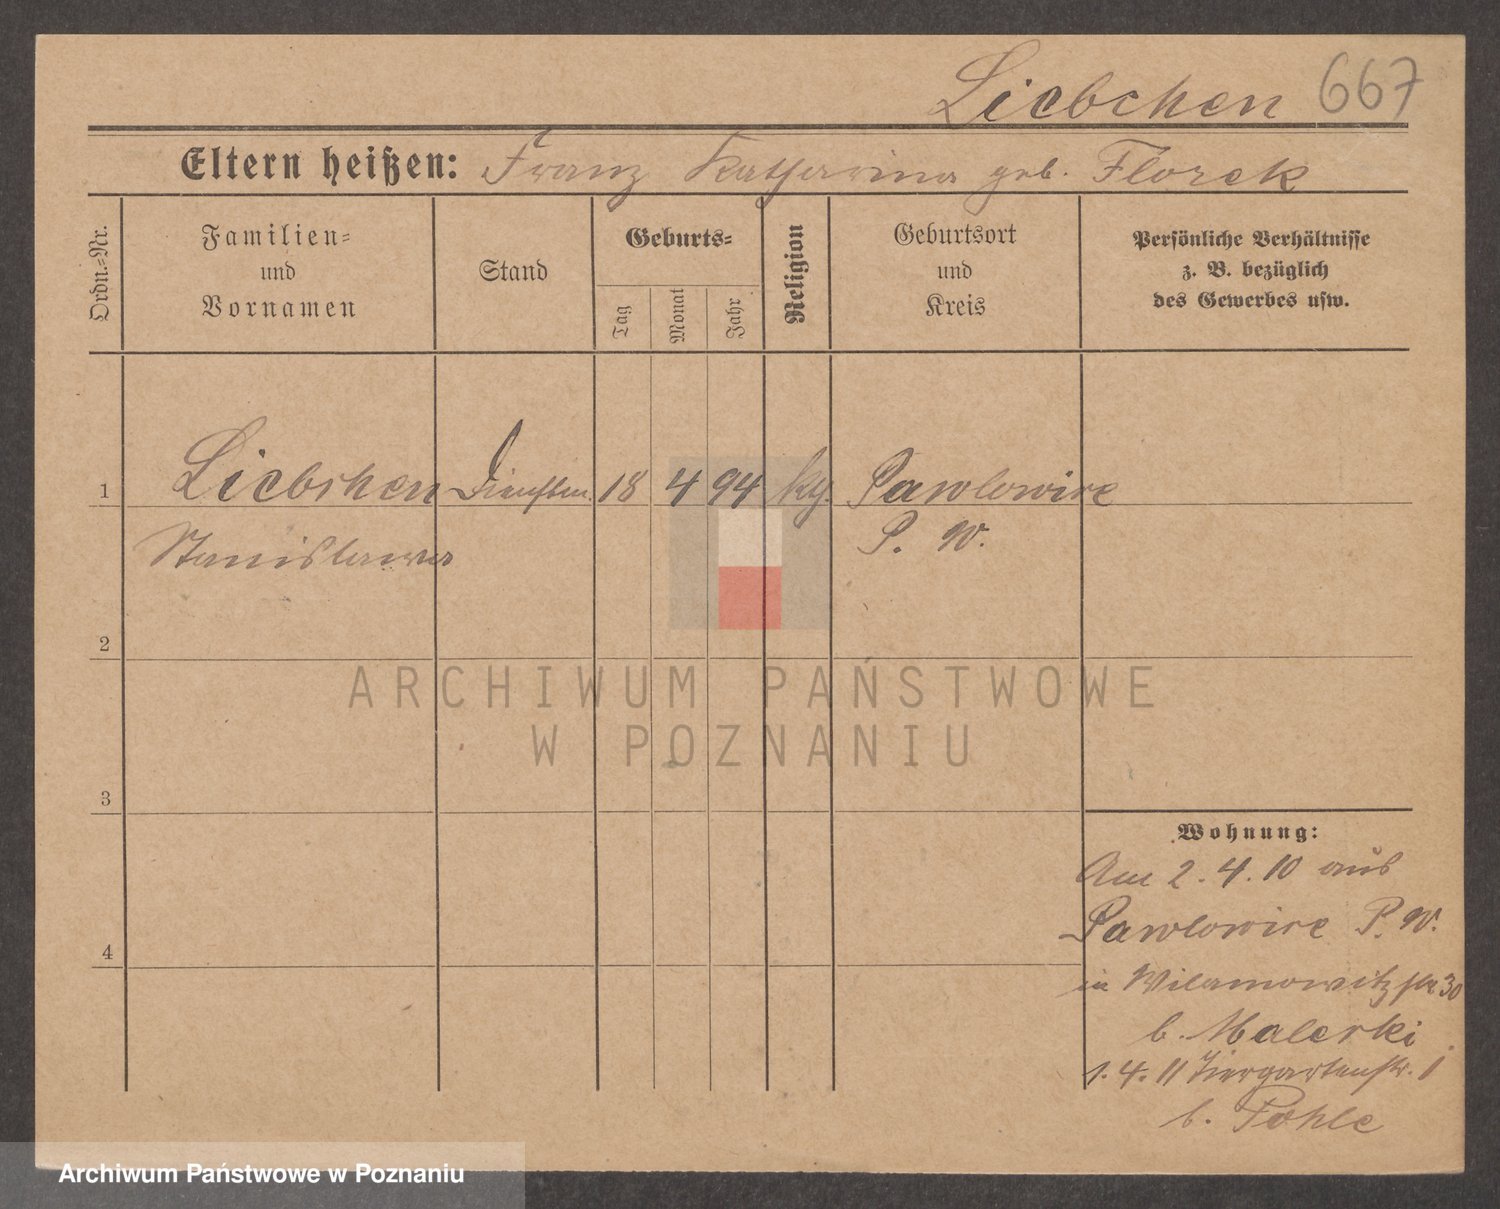 Liebchen 667
Eltern heißen: Franz Katharina geb. Florek
Ordn.-Nr.
Familien-
und
Vornamen
Stand
Geburts-
Tag
Monat
Jahr
Religion
Geburtsort
und
Kreis
Persönliche Verhältnisse
z. B. bezüglich
des Gewerbes usw.
1 Liebchen 18 4 94 Pawlowice
Stanislawa P. W.
2
ARCHIWUM PAŃSTWOWE
W POZNANIU
3
Wohnung:
Am 2. 4. 10 aus
Pawlowice P. W.
4
in Wilamowitzstr 30
b. Malerki
1. 4. 11 Tiergartenstr. 1
b. Pohle
Archiwum Państwowe w Poznaniu